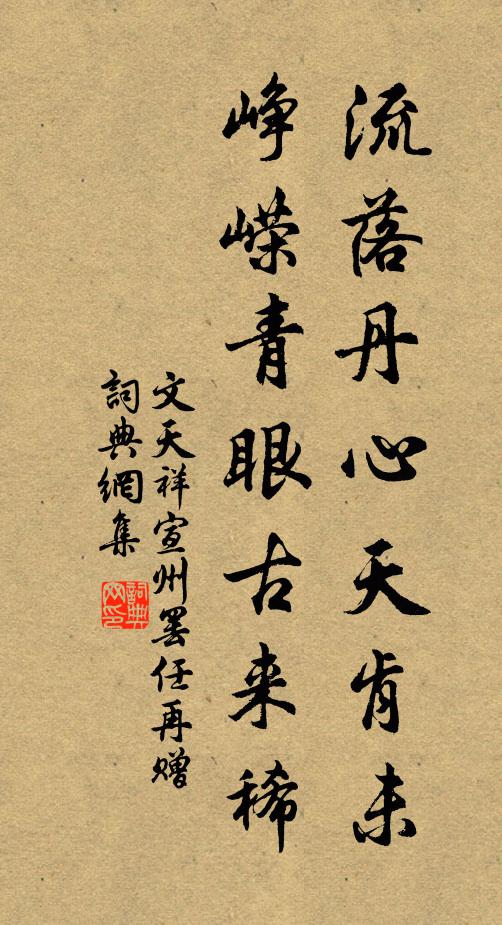 流落丹心天肯未
峥嵘青眼古来稀
文天祥宣州罢任再赠
詞典網集
詞典網印